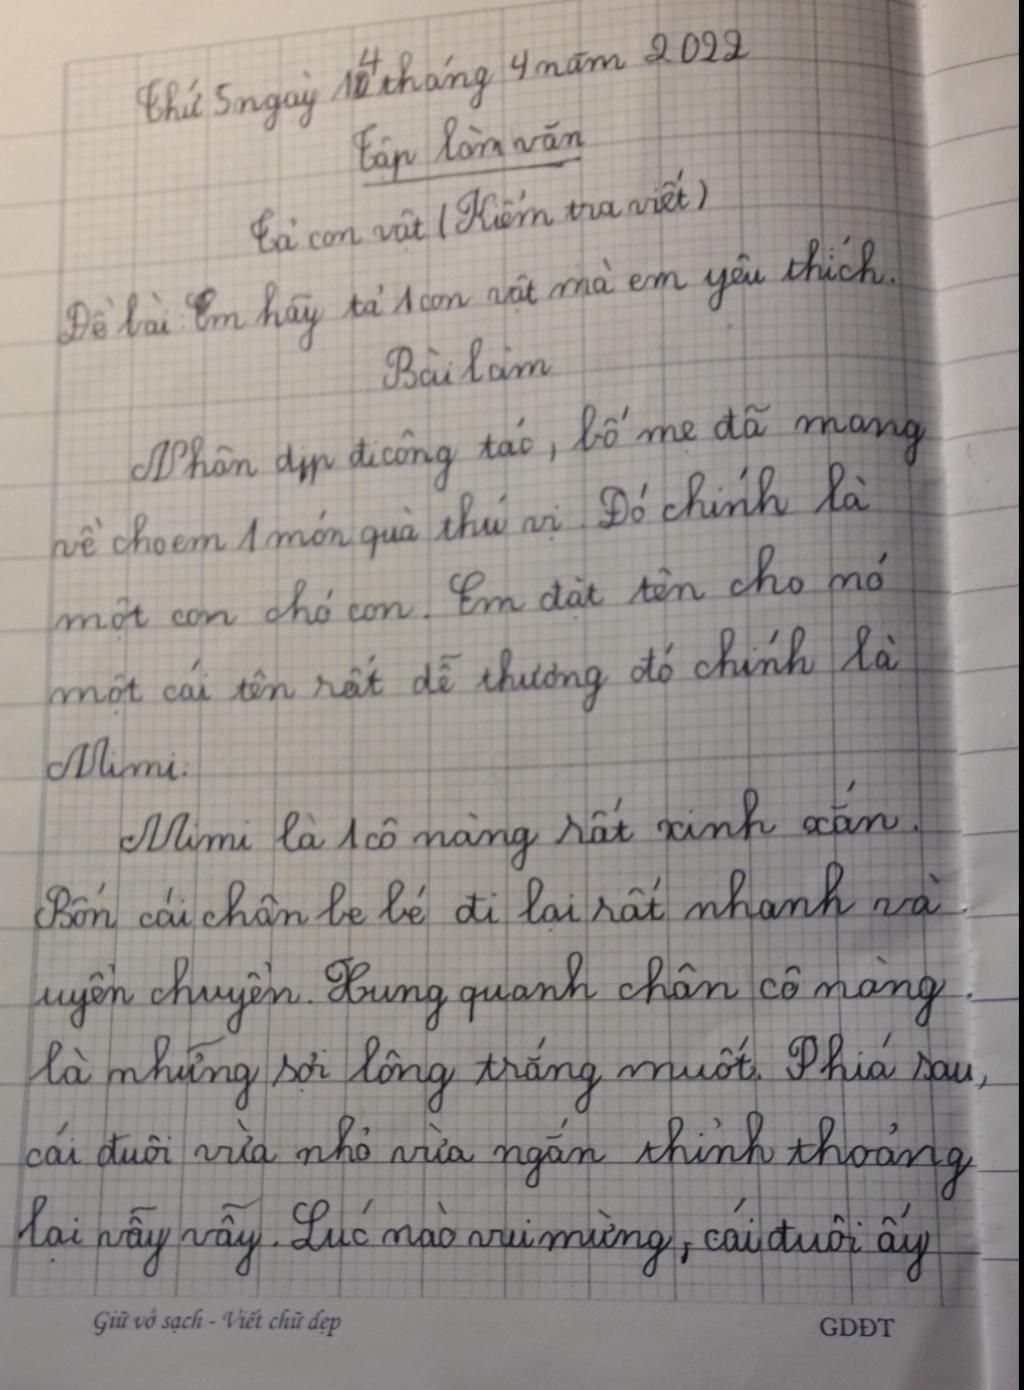 Thứ 5 ngày 14 tháng 4 năm 2022
Tập làm văn
Tả con vật (Kiểm tra viết)
Đề bài: Em hãy tả 1 con vật mà em yêu thích.
Bài làm
Nhân dịp đi công tác, bố mẹ đã mang
về cho em 1 món quà thú vị. Đó chính là
một con chó con. Em đặt tên cho nó
một cái tên rất dễ thương đó chính là
Mimi.
Mimi là 1 cô nàng rất xinh xắn.
Bốn cái chân be bé đi lại rất nhanh và
uyển chuyển. Xung quanh chân cô nàng
là những sợi lông trắng muốt. Phía sau,
cái đuôi vừa nhỏ vừa ngắn thỉnh thoảng
lại vẫy vẫy. Lúc nào vui mừng, cái đuôi ấy
Giữ vở sạch - Viết chữ đẹp
GDĐT